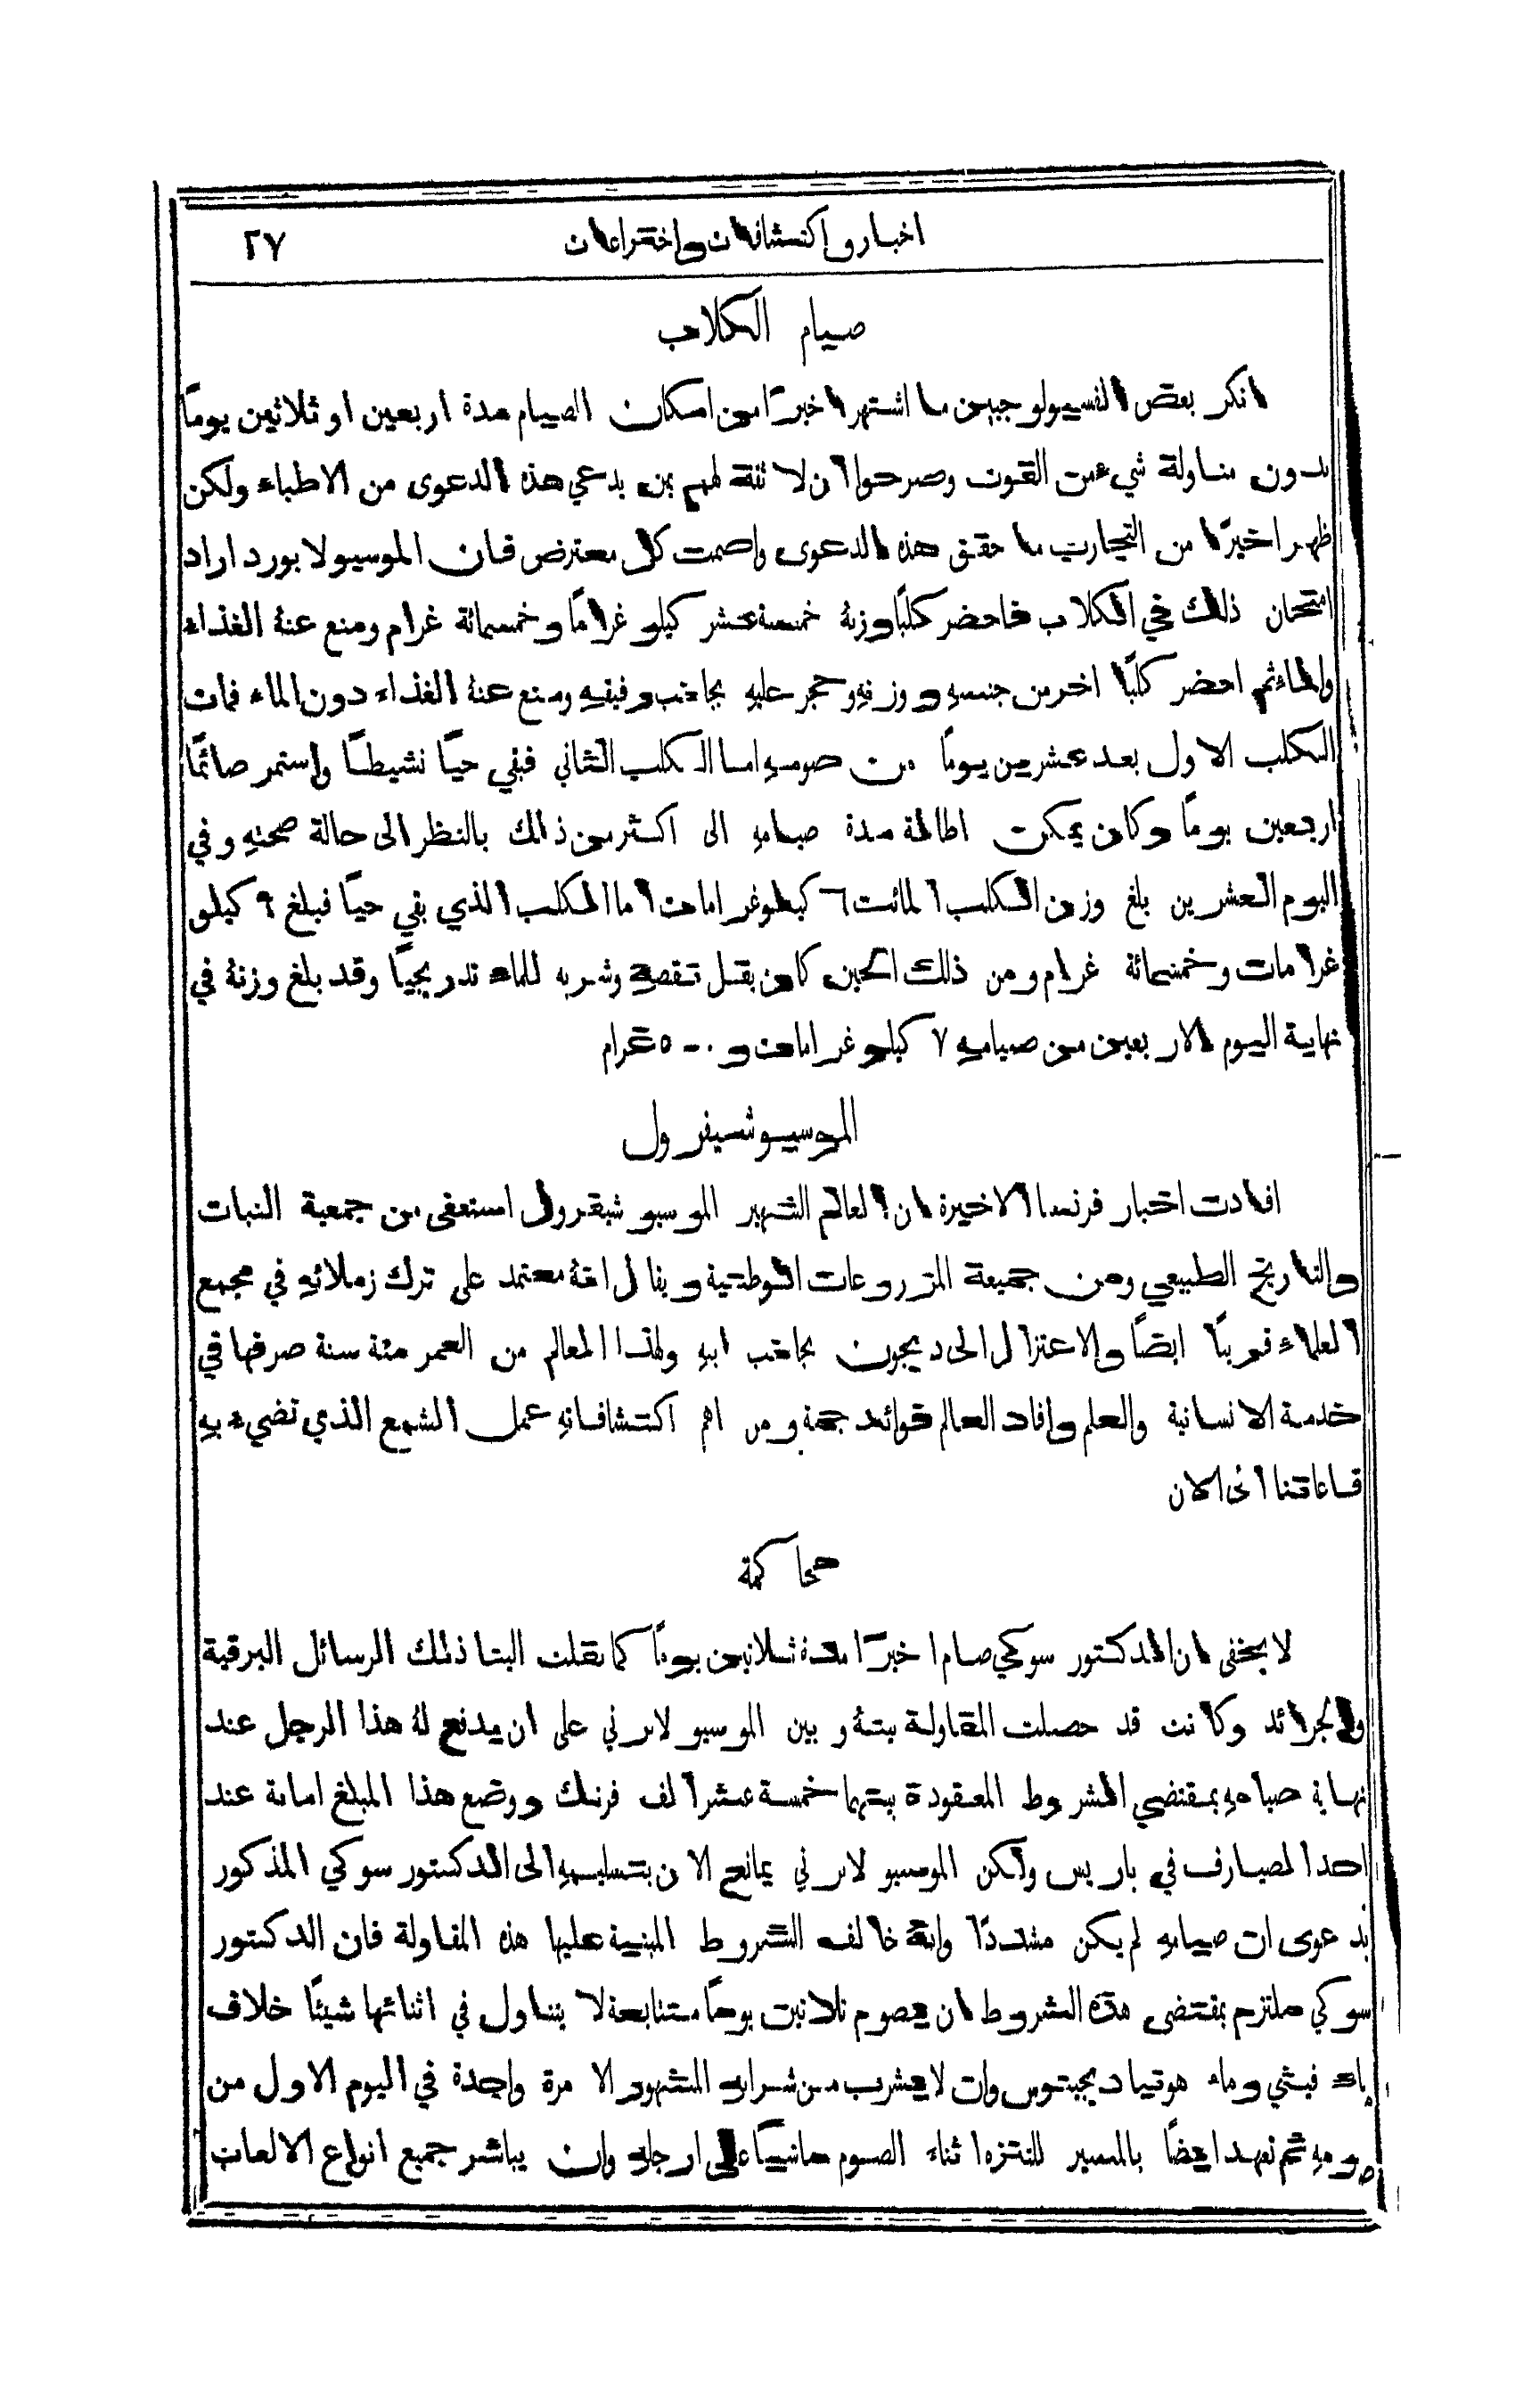 اخبار واكتشافات واختراعات
٢٧
صيام الكلاب
انكر بعض الفسيولوجيين ما اشتهر اخيرًا من امكان الصيام مدة اربعين او ثلاثين يومًا
بدون مناولة شيء من القوت وصرحوا ان لا ثقة لهم بمن يدعي هذه الدعوى من الاطباء ولكن
ظهر اخيرًا من التجارب ما حقق هذه الدعوى واصمت كل معترض فان الموسيو لابورد اراد
امتحان ذلك في الكلاب فاحضر كلبًا وزنهُ خمسة عشر كيلو غرامًا وخمسمائة غرام ومنع عنهُ الغذاء
والماء ثم احضر كلبًا اخر من جنسهِ ووزنهِ وحجر عليهِ بجانب رفيقهِ ومنع عنهُ الغذاء دون الماء فمات
الكلب الاول بعد عشرين يومًا من صومهِ اما الكلب الثاني فبقي حيًا نشيطًا واستمر صائمًا
اربعين يومًا وكان يمكن اطالة مدة صيامهِ الى اكثر من ذلك بالنظر الى حالة صحتهِ وفي
اليوم العشرين بلغ وزن الكلب المائت ٦ كيلوغرامات اما الكلب الذي بقي حيًا فبلغ ٩ كيلو
غرامات وخمسمائة غرام ومن ذلك الحين كان يقل نقصهُ وشربه للماء تدريجيًا وقد بلغ وزنهُ في
نهاية اليوم الاربعين من صيامهِ ٧ كيلو غرامات و ٥٠٠ غرام
الموسيو شيفرول
افادت اخبار فرنسا الاخيرة ان العالم الشهير الموسيو شيفرول استعفى من جمعية النبات
والتاريخ الطبيعي ومن جمعية المزروعات الوطنية ويقال انهُ معتمد على ترك زملائهِ في مجمع
العلماء قريبًا ايضًا والاعتزال الى ديجون بجانب ابنهِ ولهذا العالم من العمر مئة سنة صرفها في
خدمة الانسانية والعلم وافاد العالم فوائد جمة ومن اهم اكتشافاتهِ عمل الشمع الذي تضيء بهِ
قاعاتنا الى الان
محاكمة
لا يخفى ان الدكتور سوكي صام اخيرًا مدة ثلاثين يومًا كما نقلت الينا ذلك الرسائل البرقية
والجرائد وكانت قد حصلت المقاولة بينهُ وبين الموسيو لاىرني على ان يدفع لهُ هذا الرجل عند
نهاية صيامهِ بمقتضى الشروط المعقودة بينهما خمسة عشر الف فرنك ووضع هذا المبلغ امانة عند
احد المصارف في باريس ولكن الموسيو لاىرني يمانع الان بتسليمهِ الى الدكتور سوكي المذكور
بدعوى ان صيامهِ لم يكن مشددًا وانهُ خالف الشروط المبنية عليها هذه المقاولة فان الدكتور
سوكي ملتزم بمقتضى هذه الشروط ان يصوم ثلاثين يومًا متتابعة لا يتناول في اثنائها شيئًا خلاف
ماء فيشي وماء هونيادي جينوس وان لا يشرب من شرابه المشهور الا مرة واحدة في اليوم الاول من
صومهِ ثم تعهد ايضًا بالمسير للتنزه اثناء الصوم ماشيًا على ارجله وان يباشر جميع انواع الالعاب